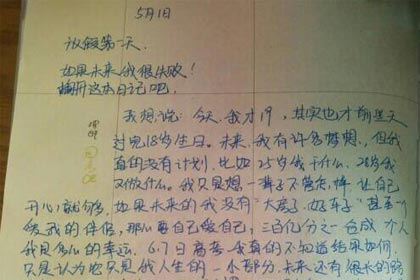 5月1日
放假第一天.
如果未来我很失败!
翻开这本日记吧.
我想说: 今天, 我才19, 其实也才前些天
过完18岁生日. 未来, 我有许多梦想, 但我
真的没有计划, 比如25岁我干什么, 28岁我
又做什么. 我只是想一辈子不管怎样, 让自己
开心就够. 如果未来的我没有"大房子, 好车子"甚至一个
爱我的伴侣, 那么要自己爱自己, 三百亿分之一合成个人
我是多么的幸运. 6.7日高考, 我真的不知道结果如何,
只是认为也只是我人生的一个部分. 未来还有很长的路